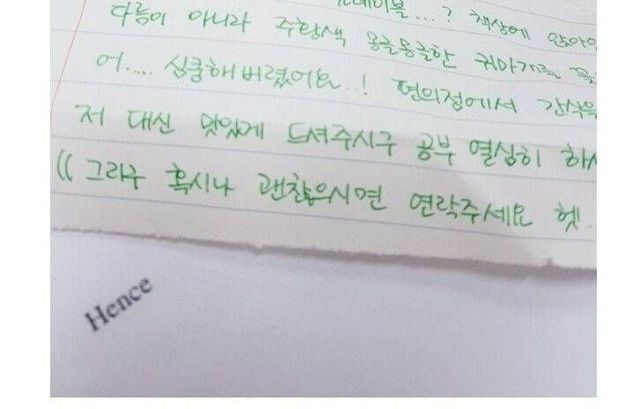 테이블...? 책상에 앉아
다름이 아니라 주황색 몽글몽글한 귀마개를
어.... 심쿵해버렸어요..! 편의점에서 간식을
저 대신 맛있게 드셔주시구 공부 열심히 하시
(( 그리구 혹시나 괜찮으시면 연락주세요 헷.
Hence